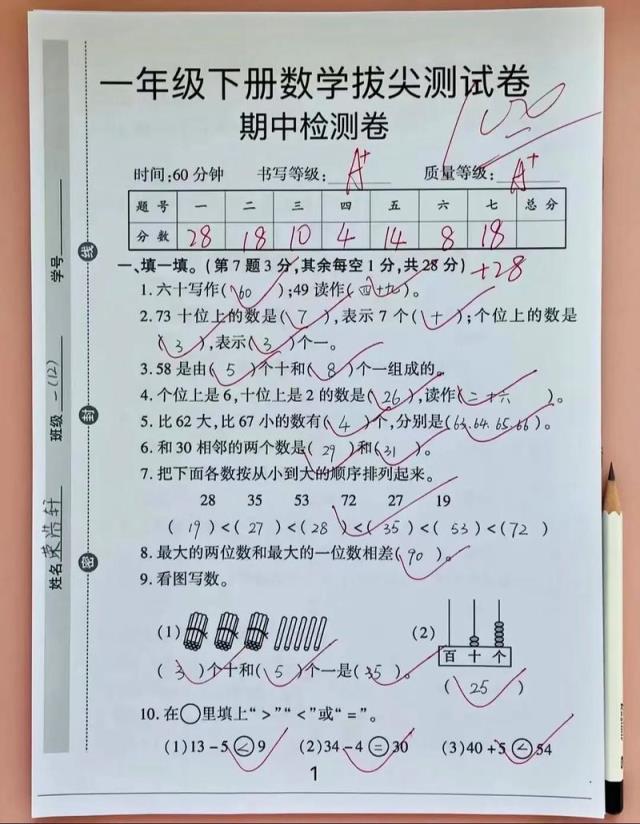 一年级下册数学拔尖测试卷
期中检测卷
100
时间:60分钟 书写等级: A+ 质量等级: A+
题号 一 二 三 四 五 六 七 总分
分数 28 18 10 4 14 8 18
一、填一填。(第7题3分,其余每空1分,共28分) +28
1.六十写作(60);49读作(四十九)。
2.73十位上的数是(7),表示7个(十);个位上的数是
(3),表示(3)个一。
3.58是由(5)个十和(8)个一组成的。
4.个位上是6,十位上是2的数是(26),读作(二十六)。
5.比62大,比67小的数有(4)个,分别是(63.64.65.66)。
6.和30相邻的两个数是(29)和(31)。
7.把下面各数按从小到大的顺序排列起来。
28 35 53 72 27 19
(19)<(27)<(28)<(35)<(53)<(72)
8.最大的两位数和最大的一位数相差(90)。
9.看图写数。
(1) (2)
百 十 个
(3)个十和(5)个一是(35)。
(25)
10.在○里填上“>”“<”或“=”。
(1)13-5<9 (2)34-4=30 (3)40+5<54
1
学号
班级 一(12)
姓名
线
封
密